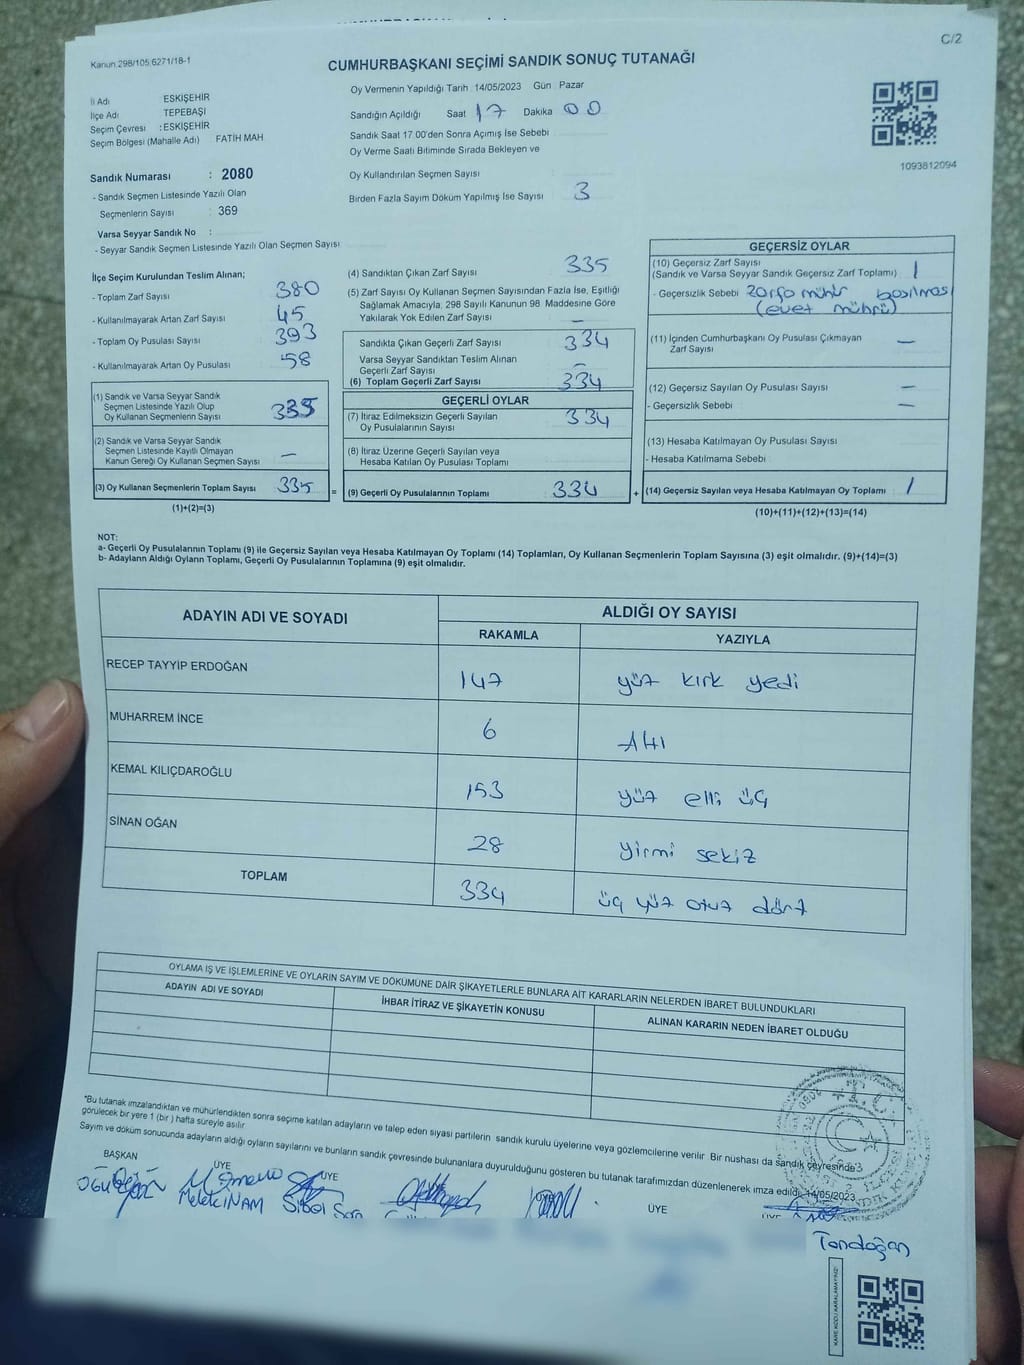 C/2
Kanun 298/105 6271/18-1
CUMHURBAŞKANI SEÇİMİ SANDIK SONUÇ TUTANAĞI
İl Adı ESKİŞEHİR
İlçe Adı TEPEBAŞI
Seçim Çevresi : ESKİŞEHİR
Seçim Bölgesi (Mahalle Adı) FATİH MAH
Sandık Numarası : 2080
- Sandık Seçmen Listesinde Yazılı Olan
Seçmenlerin Sayısı : 369
Varsa Seyyar Sandık No :
- Seyyar Sandık Seçmen Listesinde Yazılı Olan Seçmen Sayısı
Oy Vermenin Yapıldığı Tarih : 14/05/2023 Gün : Pazar
Sandığın Açıldığı Saat 17 Dakika 00
Sandık Saat 17.00'den Sonra Açımış İse Sebebi
Oy Verme Saati Bitiminde Sırada Bekleyen ve
Oy Kullandırılan Seçmen Sayısı
Birden Fazla Sayım Döküm Yapılmış İse Sayısı 3
1093812094
İlçe Seçim Kurulundan Teslim Alınan;
- Toplam Zarf Sayısı 380
- Kullanılmayarak Artan Zarf Sayısı 45
- Toplam Oy Pusulası Sayısı 393
- Kullanılmayarak Artan Oy Pusulası 58
(1) Sandık ve Varsa Seyyar Sandık
Seçmen Listesinde Yazılı Olup
Oy Kullanan Seçmenlerin Sayısı 335
(2) Sandık ve Varsa Seyyar Sandık
Seçmen Listesinde Kayıtlı Olmayan
Kanun Gereği Oy Kullanan Seçmen Sayısı —
(3) Oy Kullanan Seçmenlerin Toplam Sayısı 335
(1)+(2)=(3)
(4) Sandıktan Çıkan Zarf Sayısı 335
(5) Zarf Sayısı Oy Kullanan Seçmen Sayısından Fazla İse, Eşitliği
Sağlamak Amacıyla, 298 Sayılı Kanunun 98. Maddesine Göre
Yakılarak Yok Edilen Zarf Sayısı —
Sandıkta Çıkan Geçerli Zarf Sayısı 334
Varsa Seyyar Sandıktan Teslim Alınan
Geçerli Zarf Sayısı —
(6) Toplam Geçerli Zarf Sayısı 334
GEÇERLİ OYLAR
(7) İtiraz Edilmeksizin Geçerli Sayılan
Oy Pusulalarının Sayısı 334
(8) İtiraz Üzerine Geçerli Sayılan veya
Hesaba Katılan Oy Pusulası Toplamı
= (9) Geçerli Oy Pusulalarının Toplamı 334 +
GEÇERSİZ OYLAR
(10) Geçersiz Zarf Sayısı
(Sandık ve Varsa Seyyar Sandık Geçersiz Zarf Toplamı) 1
- Geçersizlik Sebebi Zarfa mühür basılması
(evet mührü)
(11) İçinden Cumhurbaşkanı Oy Pusulası Çıkmayan
Zarf Sayısı —
(12) Geçersiz Sayılan Oy Pusulası Sayısı —
- Geçersizlik Sebebi —
(13) Hesaba Katılmayan Oy Pusulası Sayısı
- Hesaba Katılmama Sebebi
(14) Geçersiz Sayılan veya Hesaba Katılmayan Oy Toplamı 1
(10)+(11)+(12)+(13)=(14)
NOT:
a- Geçerli Oy Pusulalarının Toplamı (9) ile Geçersiz Sayılan veya Hesaba Katılmayan Oy Toplamı (14) Toplamları, Oy Kullanan Seçmenlerin Toplam Sayısına (3) eşit olmalıdır. (9)+(14)=(3)
b- Adayların Aldığı Oyların Toplamı, Geçerli Oy Pusulalarının Toplamına (9) eşit olmalıdır.
ADAYIN ADI VE SOYADI ALDIĞI OY SAYISI
RAKAMLA YAZIYLA
RECEP TAYYİP ERDOĞAN 147 yüz kırk yedi
MUHARREM İNCE 6 Altı
KEMAL KILIÇDAROĞLU 153 yüz elli üç
SİNAN OĞAN 28 yirmi sekiz
TOPLAM 334 üç yüz otuz dört
OYLAMA İŞ VE İŞLEMLERİNE VE OYLARIN SAYIM VE DÖKÜMÜNE DAİR ŞİKAYETLERLE BUNLARA AİT KARARLARIN NELERDEN İBARET BULUNDUKLARI
ADAYIN ADI VE SOYADI İHBAR İTİRAZ VE ŞİKAYETİN KONUSU ALINAN KARARIN NEDEN İBARET OLDUĞU
*Bu tutanak imzalandıktan ve mühürlendikten sonra seçime katılan adayların ve talep eden siyasi partilerin sandık kurulu üyelerine veya gözlemcilerine verilir Bir nüshası da sandık çevresinde
görülecek bir yere 1 (bir ) hafta süreyle asılır
Sayım ve döküm sonucunda adayların aldığı oyların sayılarını ve bunların sandık çevresinde bulunanlara duyurulduğunu gösteren bu tutanak tarafımızdan düzenlenerek imza edildi. 14/05/2023
BAŞKAN ÜYE ÜYE ÜYE ÜYE ÜYE
Sibel
Tandoğan